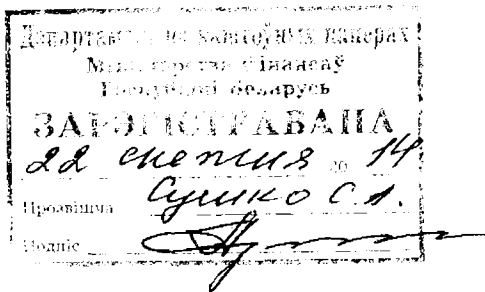 Дэпартамент па каштоўных паперах
Міністэрства фінансаў
Рэспублікі Беларусь
ЗАРЭГІСТРАВАНА
22 снежня 20 14
Прозвішча Сушко С.А.
Подпіс